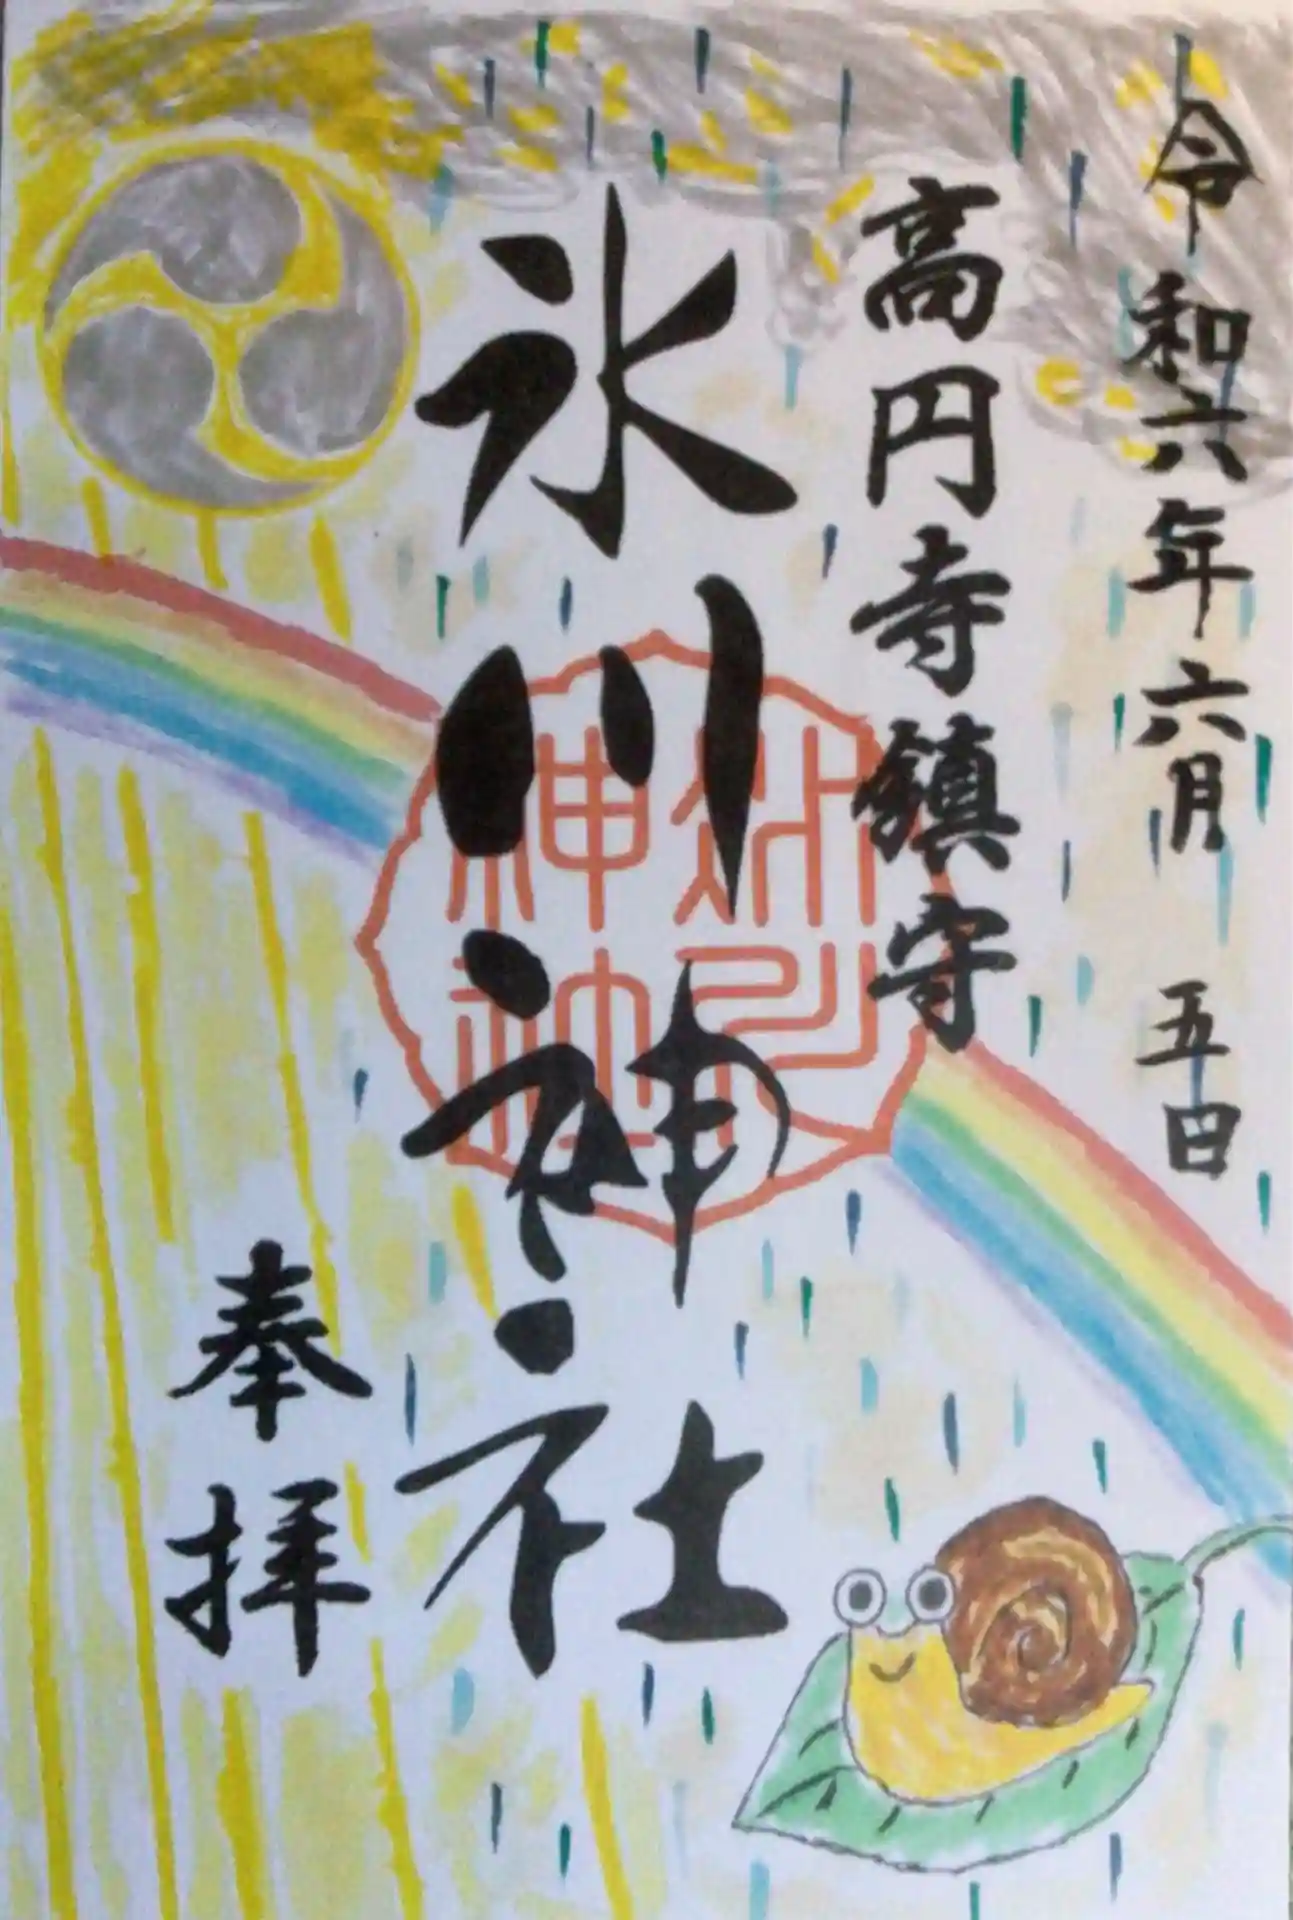 令和六年六月 五日
高円寺鎮守
氷川神社
氷川
神社
奉拝